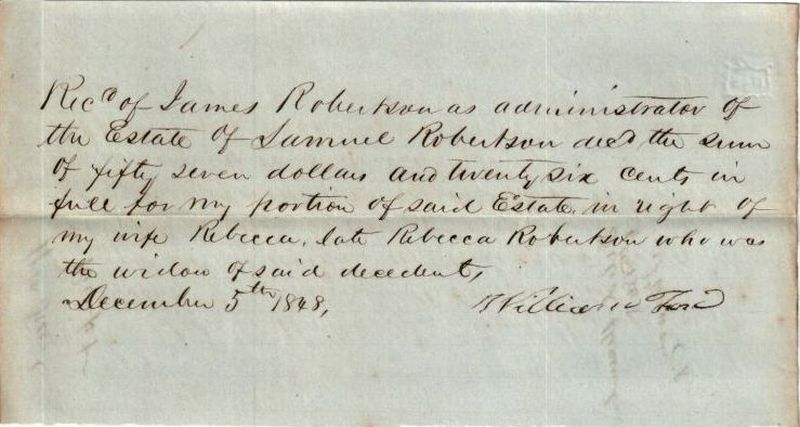 Recd of James Robertson as administrator of
the Estate of Samuel Robertson decd the sum
of fifty seven dollars and twenty six cents in
full for my portion of said Estate, in right of
my wife Rebecca, late Rebecca Robertson who was
the widow of said decedent,
December 5th 1848,
William Ford